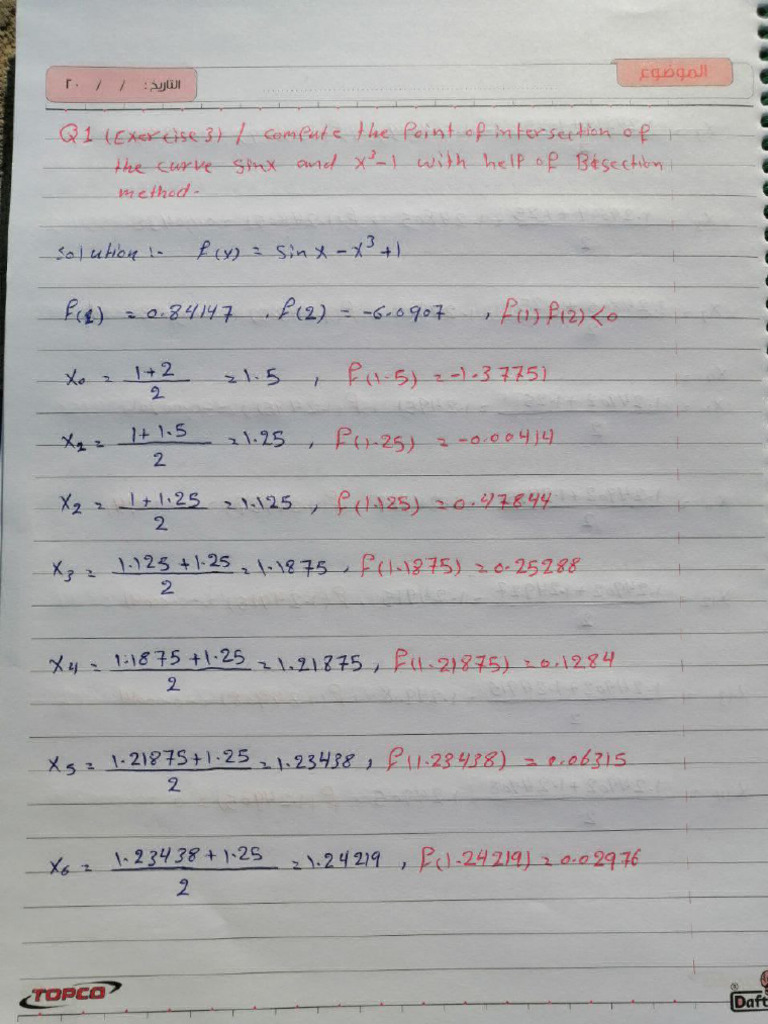 الموضوع
التاريخ: / / ٢٠
Q1 (Exercise 3) / compute the Point of intersection of
the curve sinx and x³-1 with help of Bisection
method.
Solution:- f(x) = sinx - x³ + 1
f(1) = 0.84147 , f(2) = -6.0907 , f(1) f(2) < 0
x₀ = (1+2)/2 = 1.5 , f(1.5) = -1.37751
x₁ = (1+1.5)/2 = 1.25 , f(1.25) = -0.00414
x₂ = (1+1.25)/2 = 1.125 , f(1.125) = 0.47844
x₃ = (1.125+1.25)/2 = 1.1875 , f(1.1875) = 0.25288
x₄ = (1.1875+1.25)/2 = 1.21875 , f(1.21875) = 0.1284
x₅ = (1.21875+1.25)/2 = 1.23438 , f(1.23438) = 0.06315
x₆ = (1.23438+1.25)/2 = 1.24219 , f(1.24219) = 0.02976
TOPCO
Daft